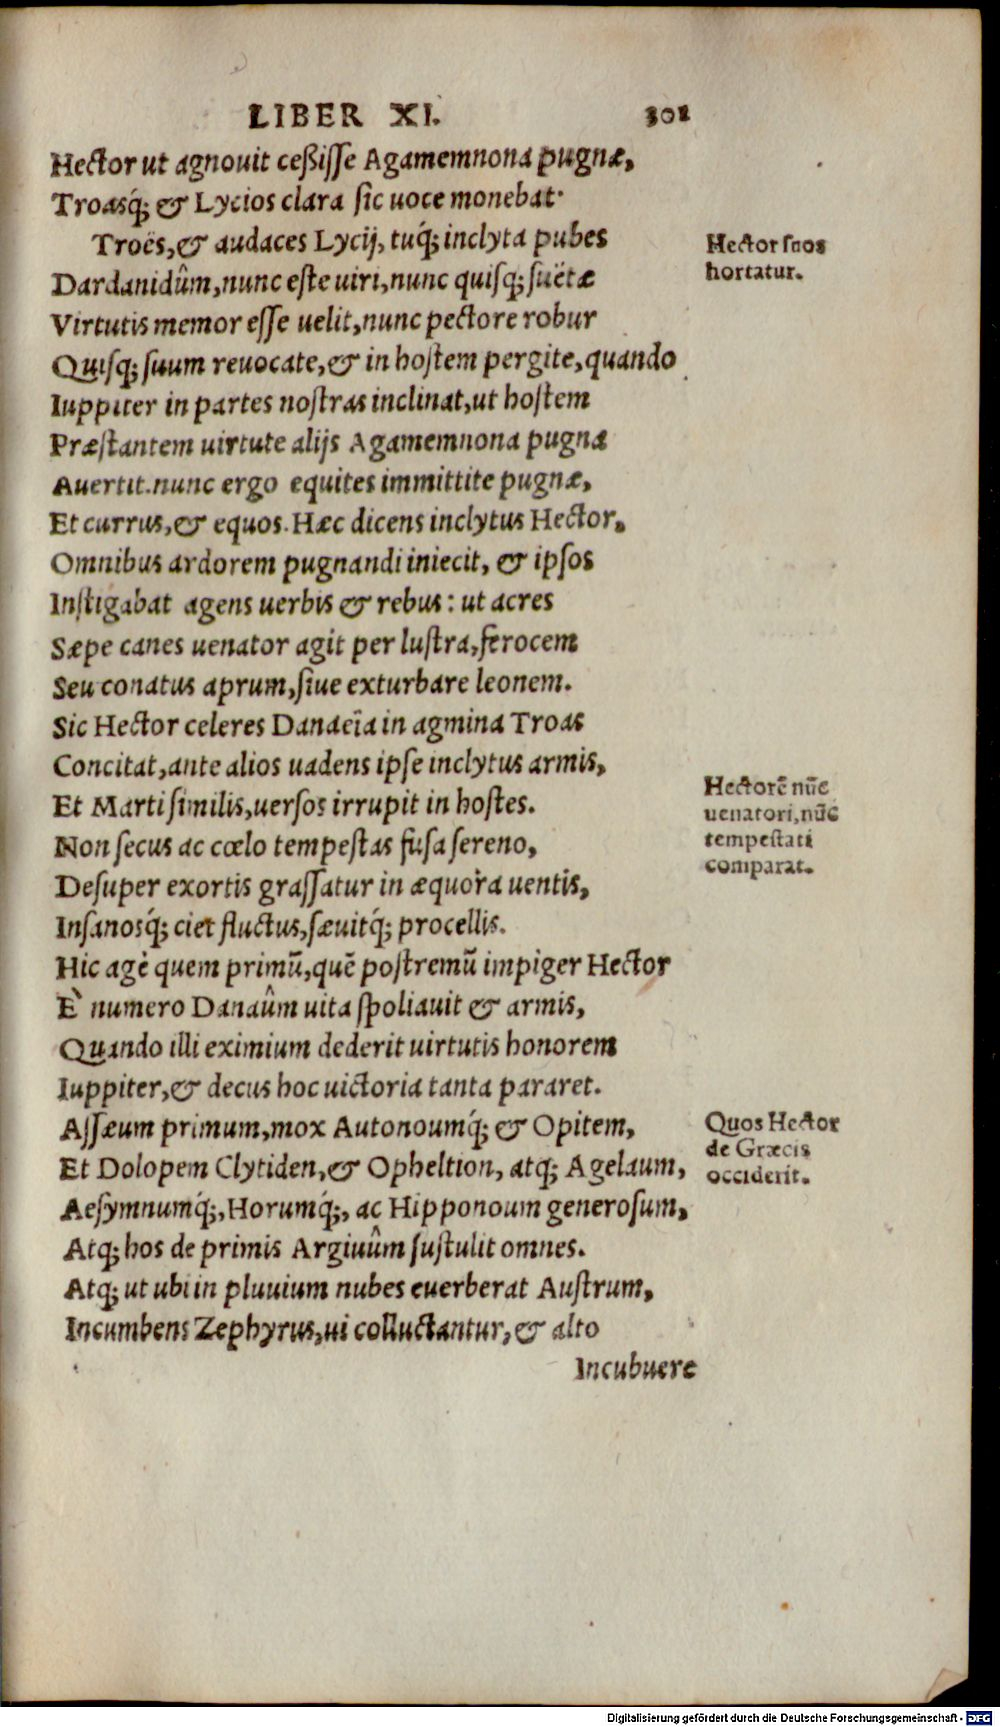 LIBER XI. 301
Hector ut agnouit ceßisse Agamemnona pugnæ,
Troasq́; & Lycios clara sic uoce monebat·
Troës, & audaces Lycij, tuq́; inclyta pubes
Hector suos
hortatur.
Dardanidûm, nunc este uiri, nunc quisq; suëtæ
Virtutis memor esse uelit, nunc pectore robur
Quisq; suum reuocate, & in hostem pergite, quando
Iuppiter in partes nostras inclinat, ut hostem
Præstantem uirtute alijs Agamemnona pugna
Auertit. nunc ergo equites immittite pugnæ,
Et currus, & equos. Hæc dicens inclytus Hector,
Omnibus ardorem pugnandi iniecit, & ipsos
Instigabat agens uerbis & rebus: ut acres
Sæpe canes uenator agit per lustra, ferocem
Seu conatus aprum, siue exturbare leonem.
Sic Hector celeres Danaeïa in agmina Troas
Concitat, ante alios uadens ipse inclytus armis,
Et Marti similis, uersos irrupit in hostes.
Hectorē nūc
uenatori, nūc
tempestati
comparat.
Non secus ac cœlo tempestas fusa sereno,
Desuper exortis grassatur in æquora uentis,
Insanosq́; ciet fluctus, sæuitq́; procellis.
Hic agè quem primū, quē postremū impiger Hector
È numero Danaûm uita spoliauit & armis,
Quando illi eximium dederit uirtutis honorem
Iuppiter, & decus hoc uictoria tanta pararet.
Assæum primum, mox Autonoumq́; & Opitem,
Quos Hector
de Græcis
occiderit.
Et Dolopem Clytiden, & Opheltion, atq; Agelaum,
Aesymnumq́;, Horumq́;, ac Hipponoum generosum,
Atq; hos de primis Argiuûm sustulit omnes.
Atq; ut ubi in pluuium nubes euerberat Austrum,
Incumbens Zephyrus, ui colluctantur, & alto
Incubuere
Digitalisierung gefördert durch die Deutsche Forschungsgemeinschaft - DFG